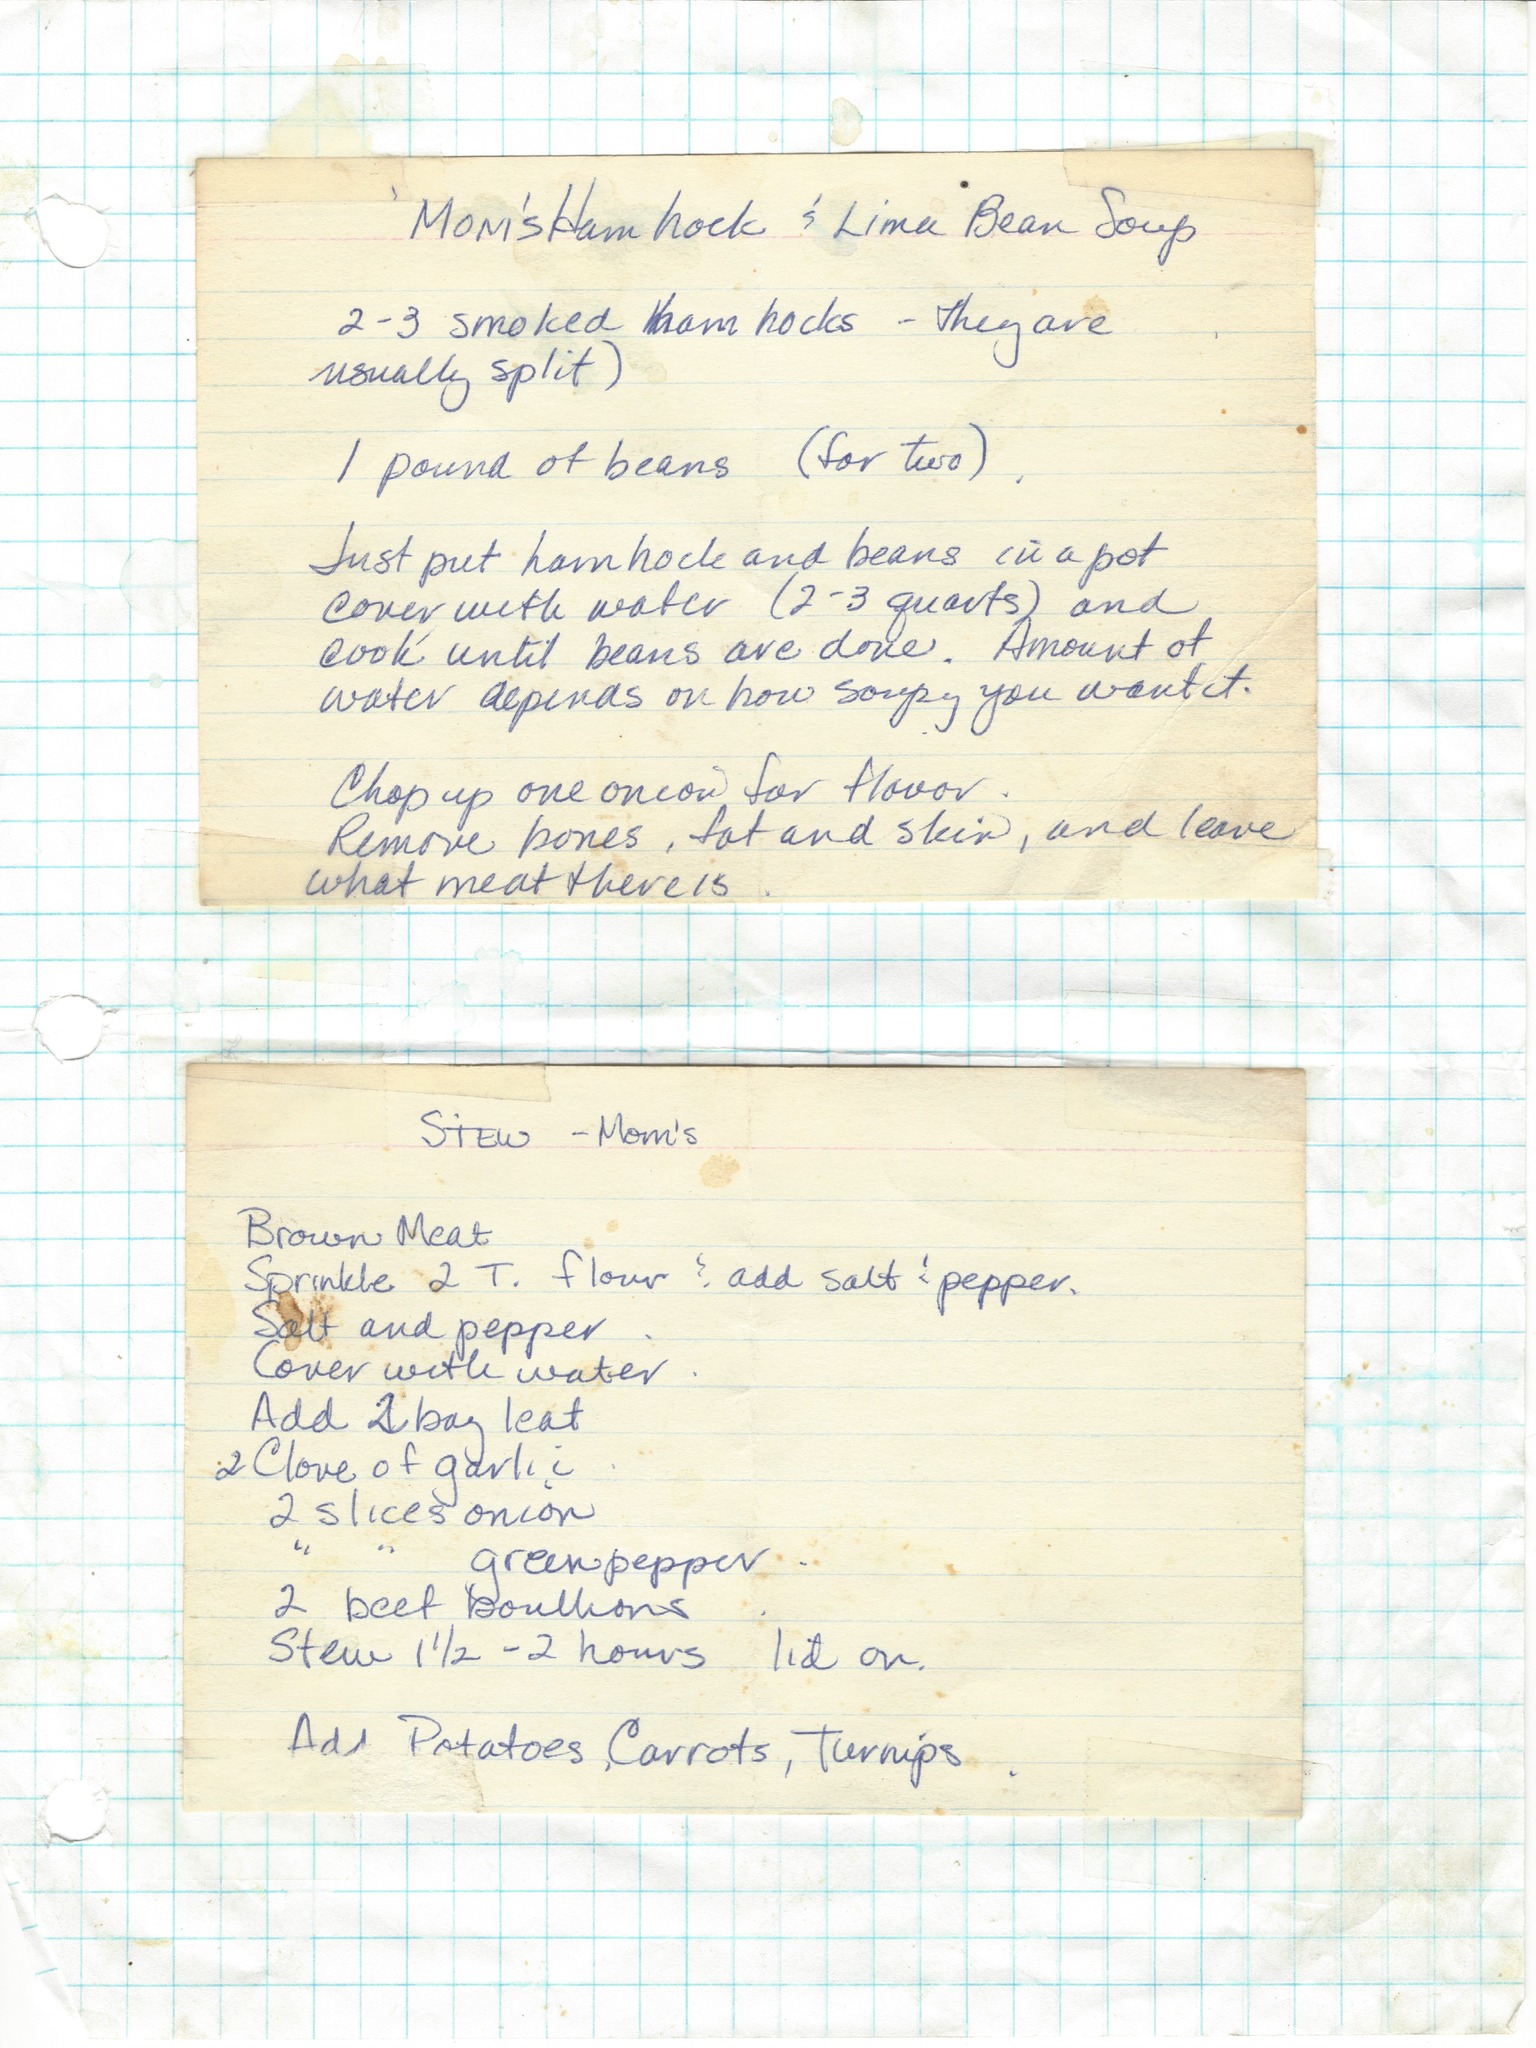 Mom's Ham hock & Lima Bean Soup
2-3 smoked ham hocks - they are
usually split)
1 pound of beans (for two).
Just put ham hock and beans in a pot
cover with water (2-3 quarts) and
cook until beans are done. Amount of
water depends on how soupy you want it.
Chop up one onion for flavor.
Remove bones, fat and skin, and leave
what meat there is.
STEW - Mom's
Brown Meat
Sprinkle 2 T. flour & add salt & pepper.
Salt and pepper.
Cover with water.
Add 2 bay leaf
2 Clove of garlic
2 slices onion
" " green pepper.
2 beef boullions.
Stew 1 1/2 - 2 hours lid on.
Add Potatoes, Carrots, Turnips.